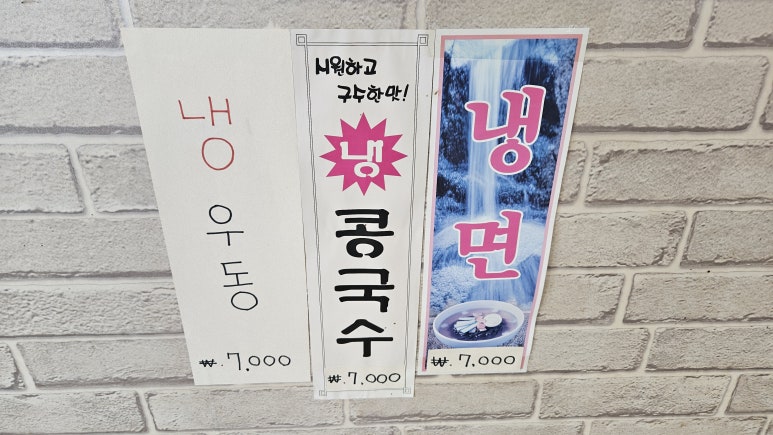 냉
우동
₩.7,000
시원하고
구수한맛!
냉
콩국수
₩.7,000
냉면
₩.7,000